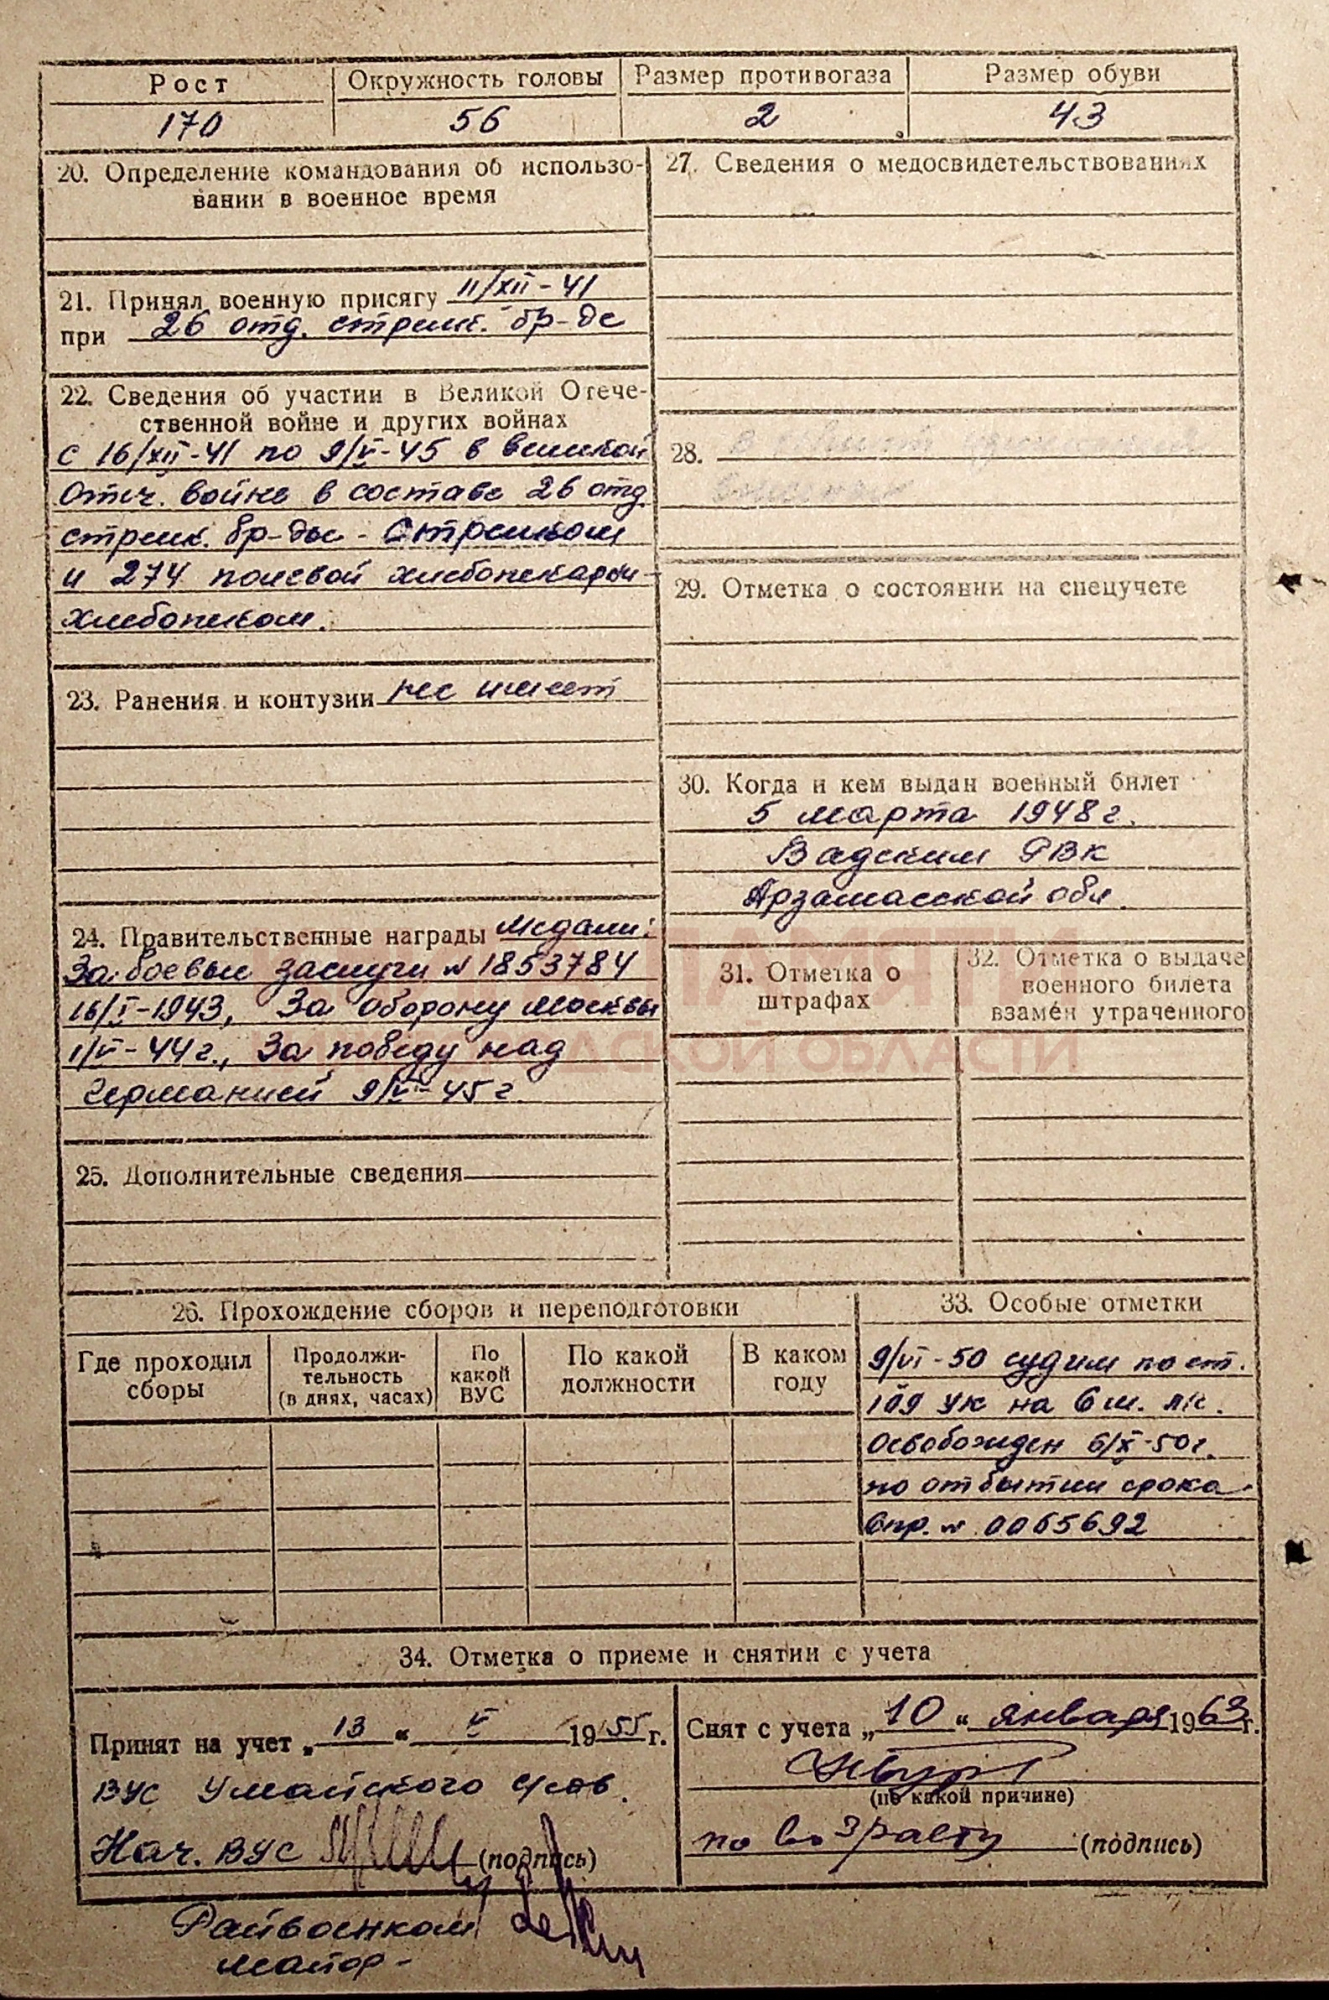 Рост
Окружность головы
Размер противогаза
Размер обуви
170
56
2
43
20. Определение командования об использо-
вании в военное время
21. Принял военную присягу 11/XII-41
при 26 отд. стрелк. бр-де
22. Сведения об участии в Великой Отече-
ственной войне и других войнах
с 16/XII-41 по 9/V-45 в великой
Отеч. войне в составе 26 отд.
стрелк. бр-ды - Стрелком
и 274 полевой хлебопекарни-
хлебопеком.
23. Ранения и контузии не имеет
24. Правительственные награды Медали:
За боевые заслуги № 1853784
16/I-1943, За оборону Москвы
1/V-44 г., За победу над
Германией 9/V-45 г.
25. Дополнительные сведения
27. Сведения о медосвидетельствованиях
28. В
29. Отметка о состоянии на спецучете
30. Когда и кем выдан военный билет
5 марта 1948 г.
Вадским РВК
Арзамасской обл.
31. Отметка о
штрафах
32. Отметка о выдаче
военного билета
взамен утраченного
ПАМЯТИ
ОБЛАСТИ
26. Прохождение сборов и переподготовки
Где проходил
сборы
Продолжи-
тельность
(в днях, часах)
По
какой
ВУС
По какой
должности
В каком
году
33. Особые отметки
9/VI-50 судим по ст.
109 УК на 6 м. л/с.
Освобожден 6/X-50 г.
по отбытии срока.
Спр. № 0065692
34. Отметка о приеме и снятии с учета
Принят на учет „13“ V 1955 г.
ВУС Умайского с/сов.
Нач. ВУС (подпись)
Райвоенком
майор-
Снят с учета „10“ января 1963 г.
(по какой причине)
по возрасту (подпись)